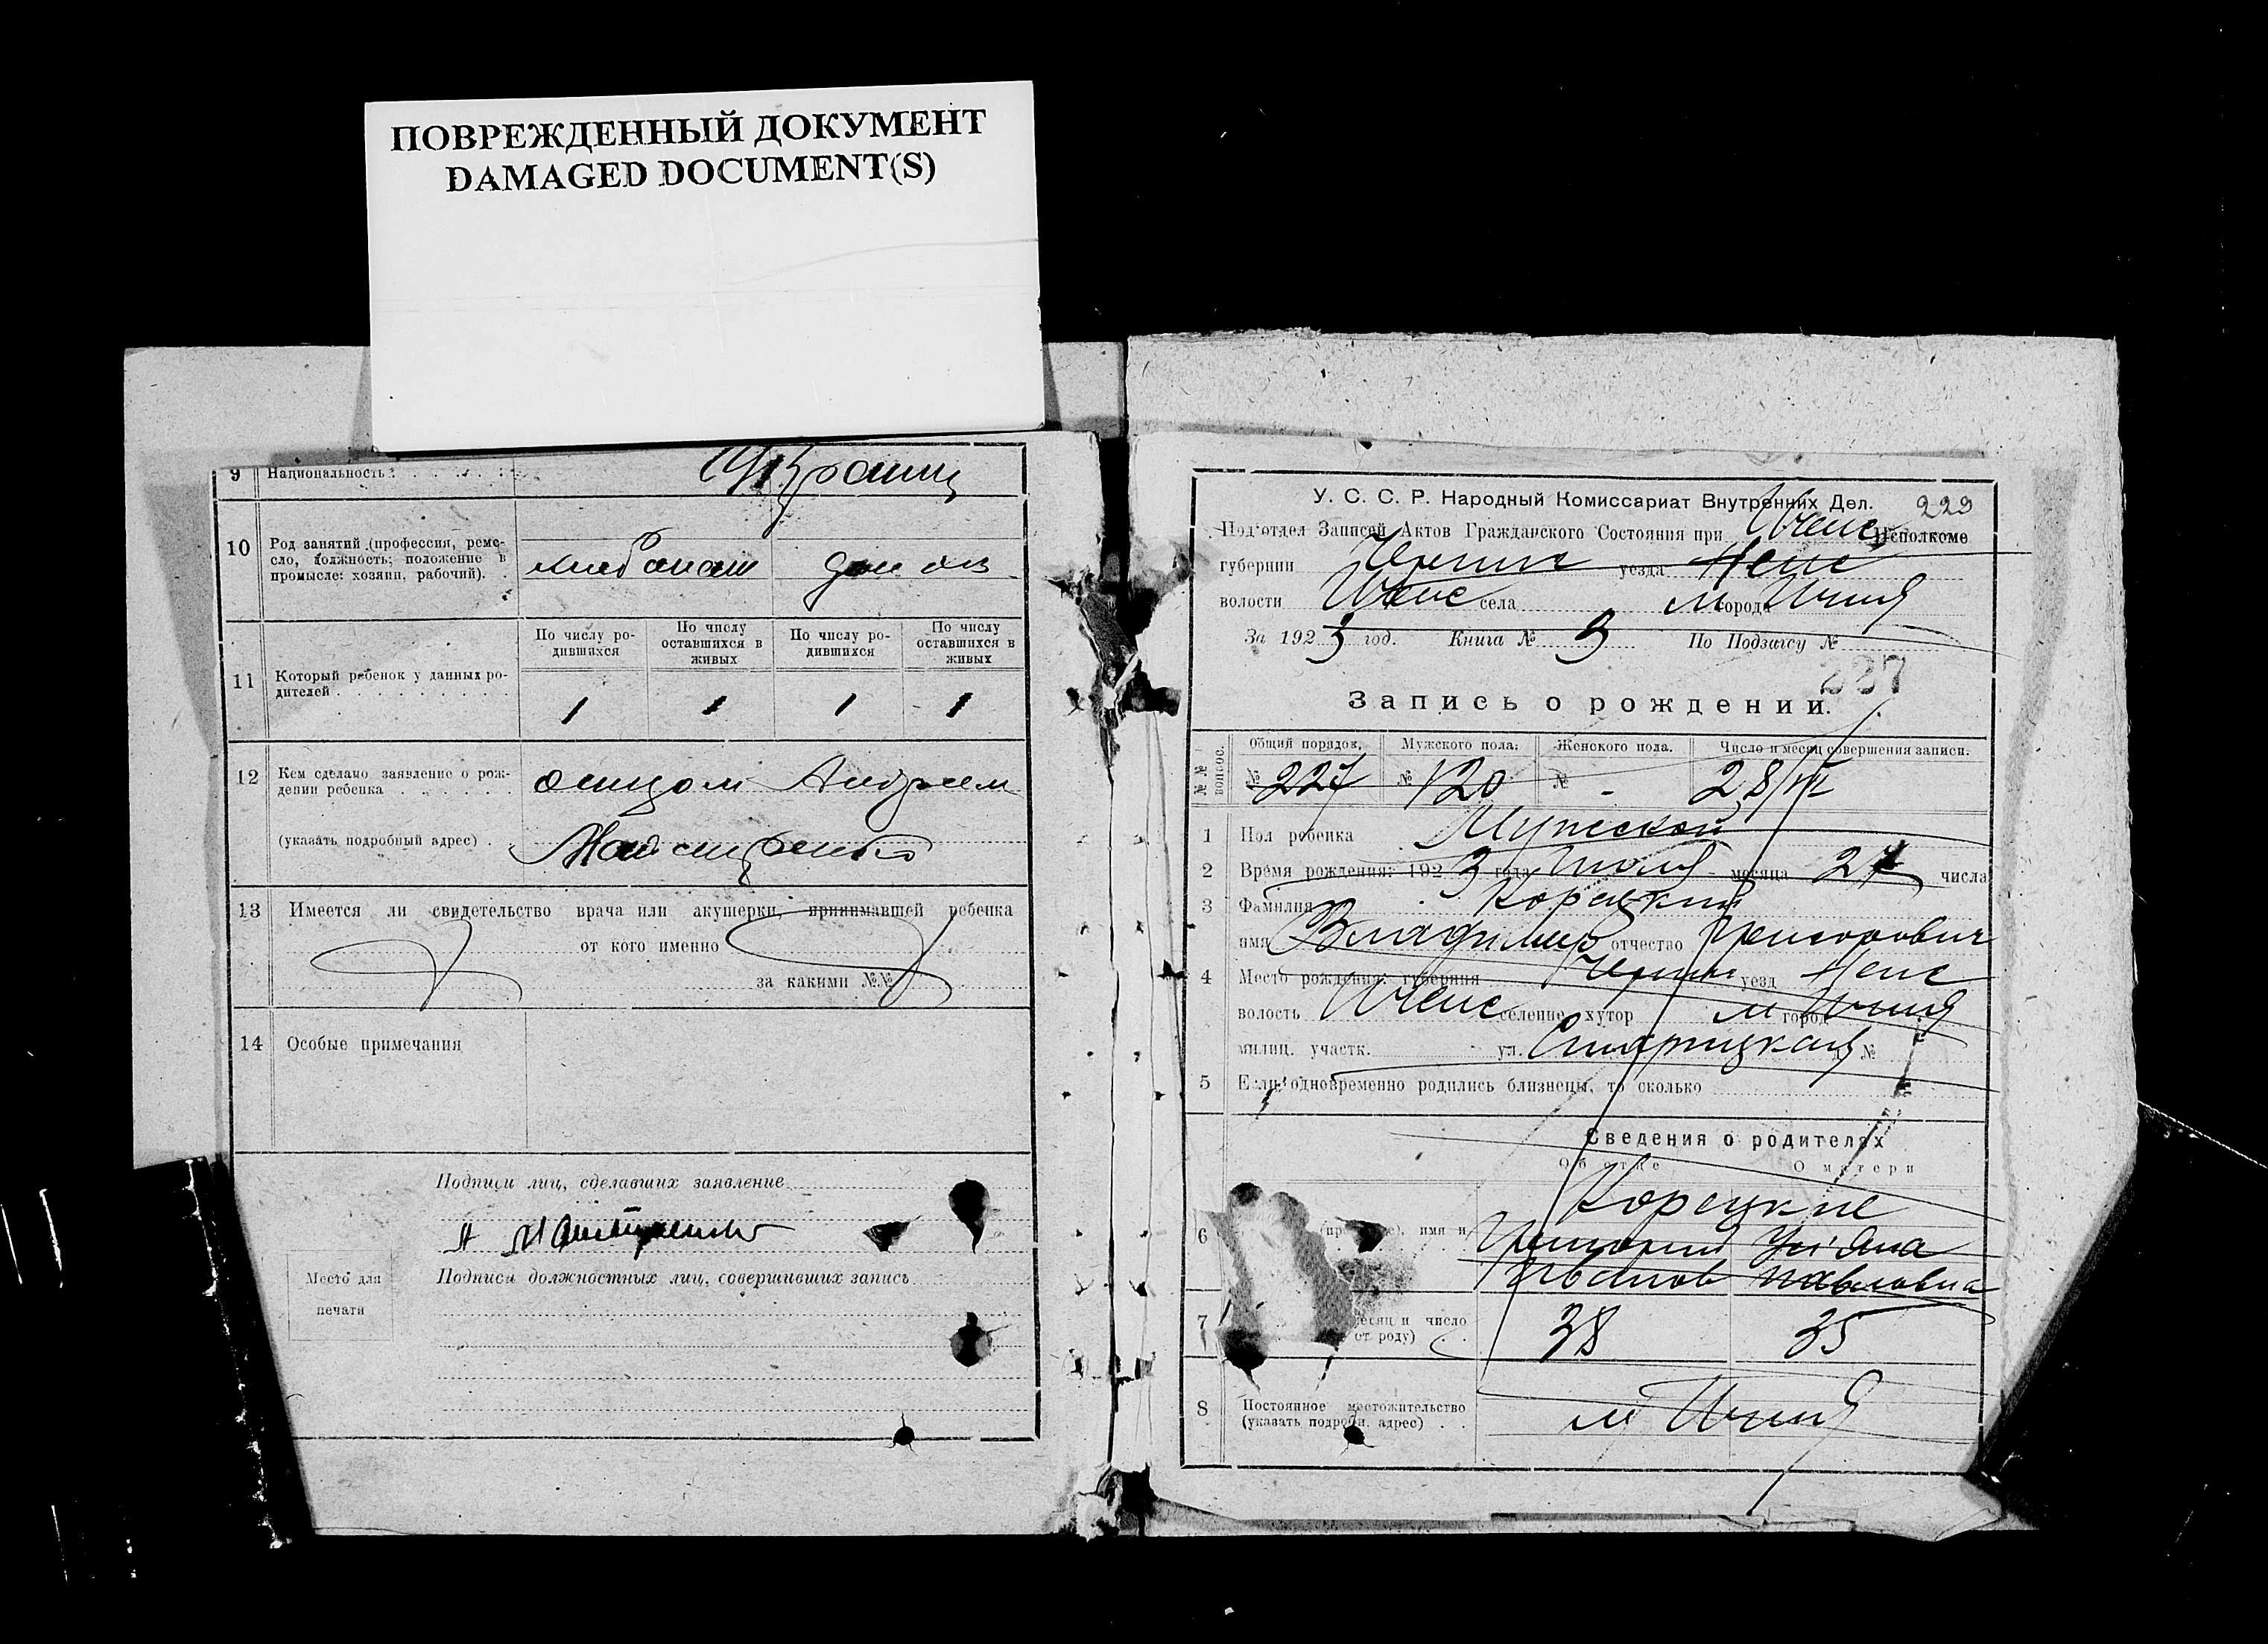 ПОВРЕЖДЕННЫЙ ДОКУМЕНТ
DAMAGED DOCUMENT(S)
9 Национальность
10 Род занятий (профессия, реме-
сло, должность; положение в
промысле: хозяин, рабочий).
По числу ро-
дившихся
По числу
оставшихся в
живых
По числу ро-
дившихся
По числу
оставшихся в
живых
11 Который ребенок у данных ро-
дителей
1 1 1 1
12 Кем сделано заявление о рож-
дении ребенка
Андреем
(указать подробный адрес)
13 Имеется ли свидетельство врача или акушерки, принимавшей ребенка
от кого именно
за какими №№
14 Особые примечания
Подписи лиц, сделавших заявление
Подписи должностных лиц, совершивших запись
Место для
печати
У. С. С. Р. Народный Комиссариат Внутренних Дел. 229
Под'отдел Записей Актов Гражданского Состояния при Иченс Исполкоме
губернии Черниг уезда Неж
волости Иченс села м города Ичня
За 1923 год. Книга № 3 По Подзагсу №
227
Запись о рождении.
№№ вопрос. Общий порядок. Мужского пола. Женского пола. Число и месяц совершения записи.
№ 227 № 120 № - 28/VII
1 Пол ребенка Мужской
2 Время рождения: 1923 года Июля месяца 27 числа
3 Фамилия Корецкий
имя Владимир отчество Григорович
4 Место рождения: губерния Черниг уезд Неж
волость Иченс селение, хутор м город Ичня
милиц. участк. ул. д. №
5 Если одновременно родились близнецы, то сколько
Сведения о родителях
Об отце О матери
Корецкие
6 имя и Григорий Ул'яна
Иванов Павловна
7 месяц и число
от роду) 38 35
8 Постоянное местожительство
(указать подробн. адрес) м Ичня